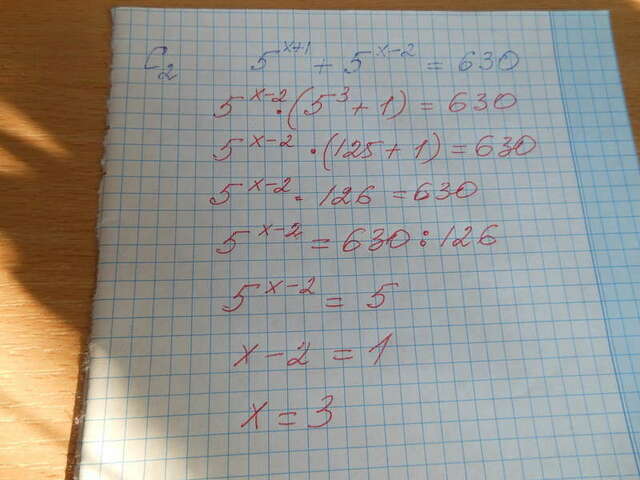 C₂ 5^{x+1} + 5^{x-2} = 630
5^{x-2} · (5^3 + 1) = 630
5^{x-2} · (125 + 1) = 630
5^{x-2} · 126 = 630
5^{x-2} = 630 : 126
5^{x-2} = 5
x - 2 = 1
x = 3